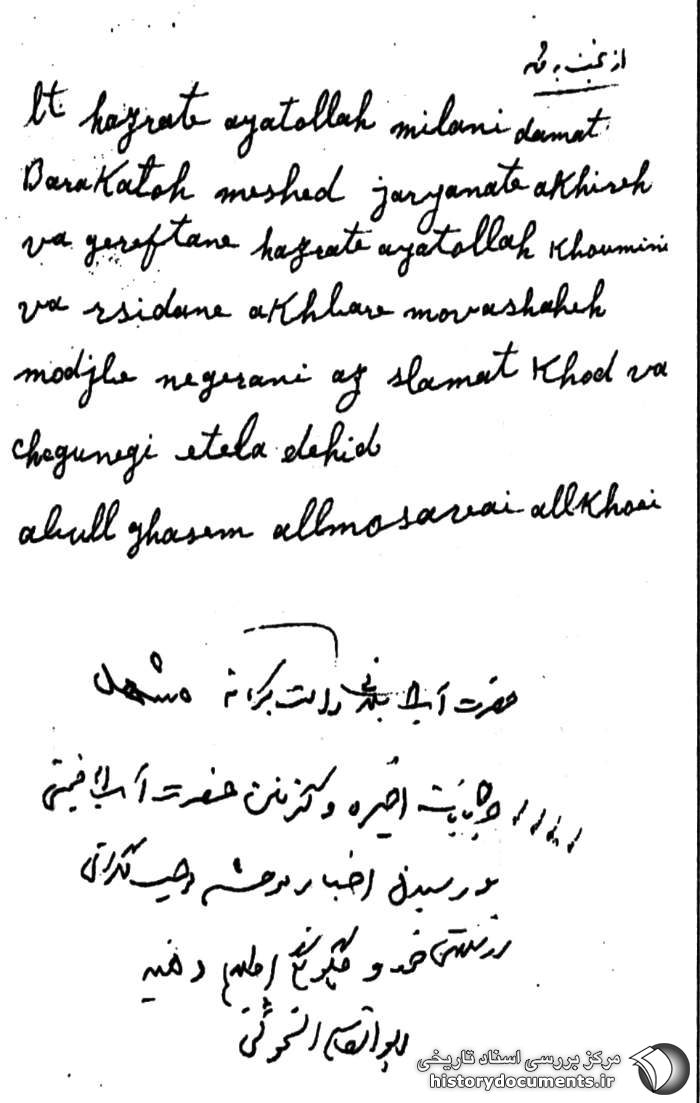 از نجف به قم
lt hazrate ayatollah milani damat
Barakatoh meshed jaryanate akhireh
va gereftane hazrate ayatollah khoumini
va rsidane akhbare movashaheh
modjbe negerani az slamat khod va
chegunegi etela dehid
abull ghasem allmosavai allkhoei
حضرت آیت‌الله میلانی دامت برکاته مشهد
جریانات اخیره و گرفتن حضرت آیت‌الله خمینی
و رسیدن اخبار موحشه موجب نگرانی
از سلامتی خود و چگونگی اطلاع دهید
ابوالقاسم الخوئی
مرکز بررسی اسناد تاریخی
historydocuments.ir